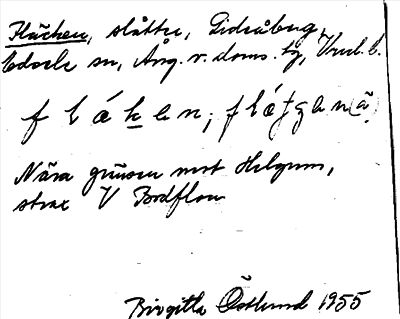 Fläcken, slåtter, Gideåberg,
Edsele sn, Ång. v. doms. tg, Vnrl. l.
f l á k e n ; f l á f g e n ä
Nära gränsen mot Helgum,
strax V Bordflon
Birgitta Östlund 1955